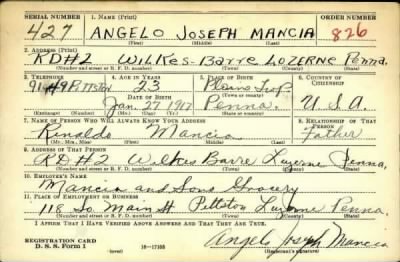 SERIAL NUMBER 1. NAME (Print) ORDER NUMBER
427 ANGELO JOSEPH MANCIA 826
(First) (Middle) (Last)
2. ADDRESS (Print)
RD#2 WILKES-BARRE LUZERNE Penna.
(Number and street or R. F. D. number) (Town) (County) (State)
3. TELEPHONE 4. AGE IN YEARS 5. PLACE OF BIRTH 6. COUNTRY OF CITIZENSHIP
PITTSTON 23 Plains Twp.
DATE OF BIRTH (Town or county)
Jan. 27 1917 Penna. U.S.A.
(Exchange) (Number) (Mo.) (Day) (Yr.) (State or country)
7. NAME OF PERSON WHO WILL ALWAYS KNOW YOUR ADDRESS 8. RELATIONSHIP OF THAT PERSON
Rinaldo Mancia Father
(Mr., Mrs., Miss) (First) (Middle) (Last)
9. ADDRESS OF THAT PERSON
RD#2 Wilkes Barre Luzerne Penna.
(Number and street or R. F. D. number) (Town) (County) (State)
10. EMPLOYER'S NAME
Mancia and Sons Grocery
11. PLACE OF EMPLOYMENT OR BUSINESS
118 So. Main St Pittston Luzerne Penna.
(Number and street or R. F. D. number) (Town) (County) (State)
I AFFIRM THAT I HAVE VERIFIED ABOVE ANSWERS AND THAT THEY ARE TRUE.
REGISTRATION CARD
D. S. S. Form 1 (over) 16-17105 Angelo Joseph Mancia
(Registrant's signature)